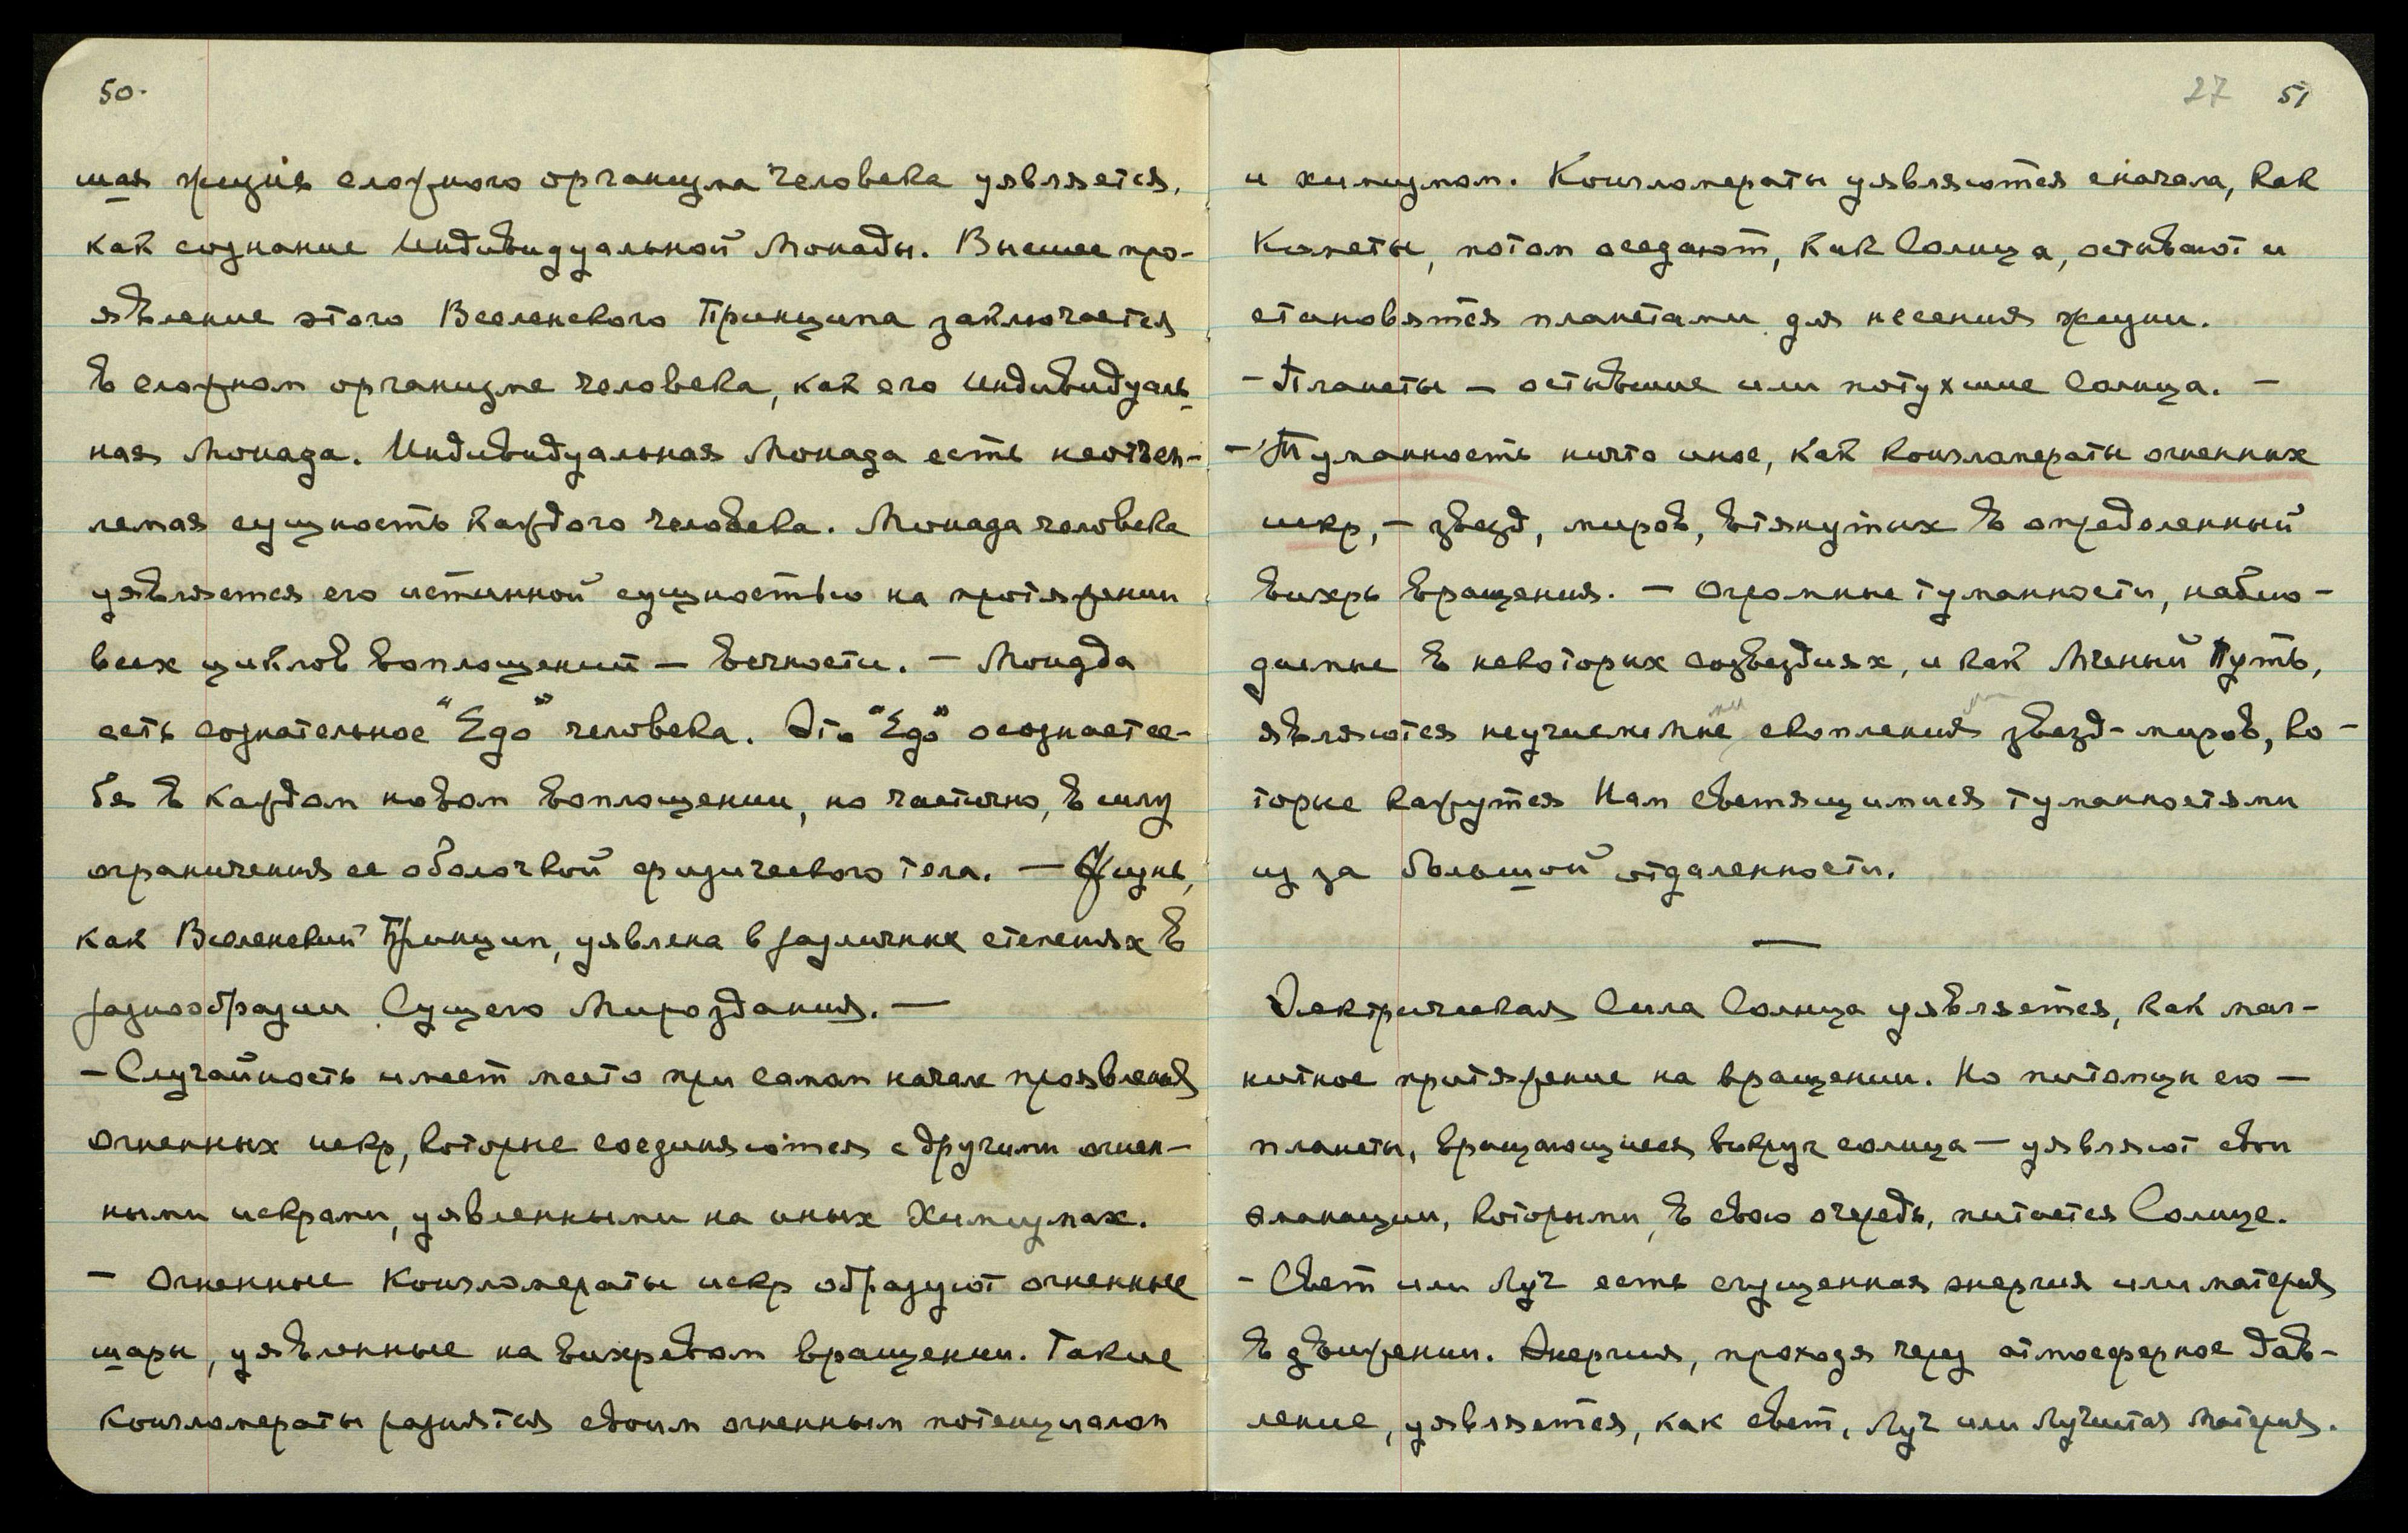 50.
шая жизнь сложного организма человека уявляется,
как сознание Индивидуальной Монады. Высшее про-
явление этого Вселенского Принципа заключается
в сложном организме человека, как его Индивидуаль-
ная Монада. Индивидуальная Монада есть неотъем-
лемая сущность каждого человека. Монада человека
уявляется его истинной сущностью на протяжении
всех циклов воплощений — вечности. — Монада
есть сознательное "Ego" человека. Это "Ego" осознает се-
бя в каждом новом воплощении, но частично, в силу
ограничения ее оболочкой физического тела. — Жизнь,
как Вселенский Принцип, уявлена в различных степенях в
разнообразии Сущего Мироздания. —
— Случайность имеет место при самом начале проявления
огненных искр, которые соединяются с другими огнен-
ными искрами, уявленными на иных Химизмах.
— Огненные Конгломераты искр образуют огненные
шары, уявленные на вихревом вращении. Такие
Конгломераты разнятся своим огненным потенциалом
27 51
и химизмом. Конгломераты уявляются сначала, как
Кометы, потом оседают, как Солнца, остывают и
становятся планетами для несения жизни.
— Планеты — остывшие или потухшие Солнца. —
— Туманность ничто иное, как конгломераты огненных
искр, — звезд, миров, втянутых в определенный
вихрь вращения. — Огромные туманности, наблю-
даемые в некоторых созвездиях, и как Млечный Путь,
являются неучислимые скопления звезд-миров, ко-
торые кажутся Нам светящимися туманностями
из за большой отдаленности.
—
Электрическая Сила Солнца уявляется, как маг-
нитное притяжение на вращении. Но питомцы его —
планеты, вращающиеся вокруг солнца — уявляют свои
эманации, которыми, в свою очередь, питается Солнце.
— Свет или Луч есть сгущенная энергия или материя
в движении. Энергия, проходя через атмосферное дав-
ление, уявляется, как свет, Луч или Лучистая Материя.